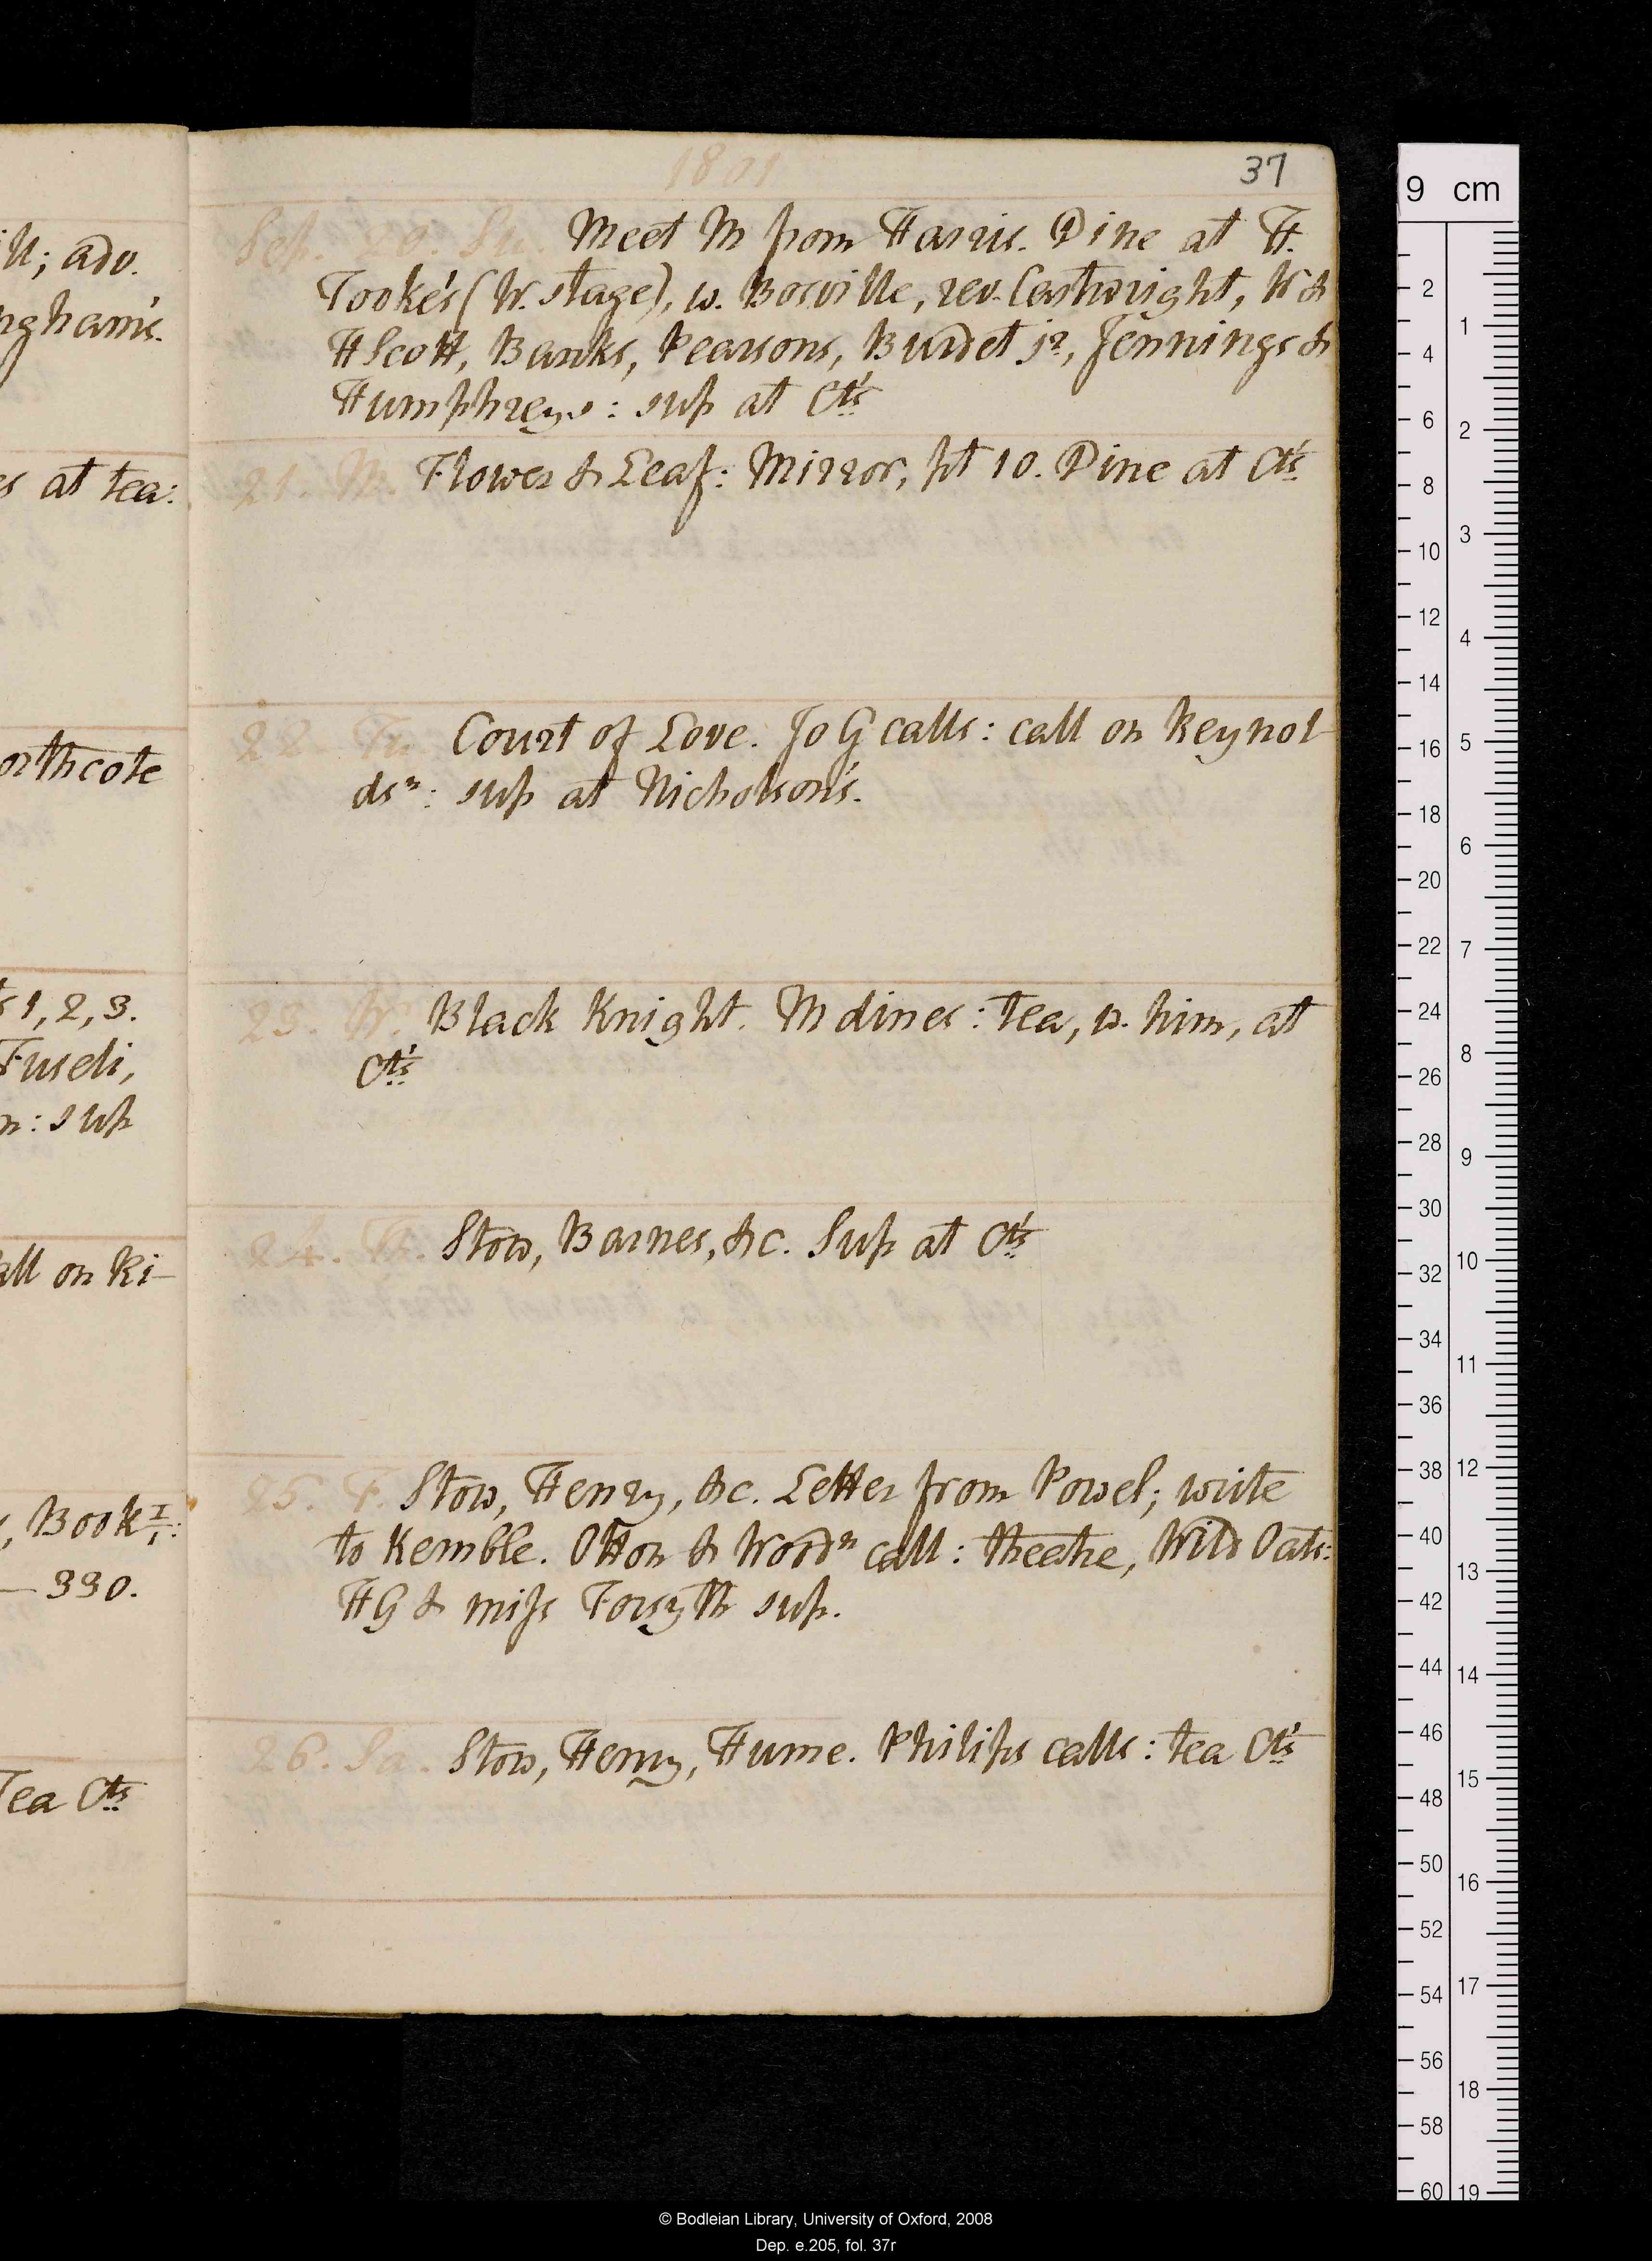 1801
37
Sep. 20. Su. Meet M from Harris. Dine at H.
Tooke's (W. stage), w. Bosville, rev. Cartwright, W &
H Scott, Banks, Pearsons, Burdet jr, Jennings &
Humphreys: sup at Cts
21. M. Flower & Leaf: Mirror, pt 10. Dine at Cts
22. Tu. Court of Love. Jo G calls: call on Reynol-
dsn: sup at Nicholson's.
23. W. Black Knight. M dines: tea, w. him, at
Cts
24. Th. Stow, Barnes, &c. Sup at Cts
25. F. Stow, Henry, &c. Letter from Powel; write
to Kemble. Otton & Wordn call: theatre, Wild Oats:
HG & miss Forsyth sup.
26. Sa. Stow, Henry, Hume. Philips calls: tea Cts
ll; adv.
ngham's.
s at tea:
orthcote
s 1, 2, 3.
Fuseli,
n: sup
all on Ri-
, Book I:
— 330.
Tea Cts
9 cm
2
4
6
8
10
12
14
16
18
20
22
24
26
28
30
32
34
36
38
40
42
44
46
48
50
52
54
56
58
60
1
2
3
4
5
6
7
8
9
10
11
12
13
14
15
16
17
18
19
© Bodleian Library, University of Oxford, 2008
Dep. e.205, fol. 37r